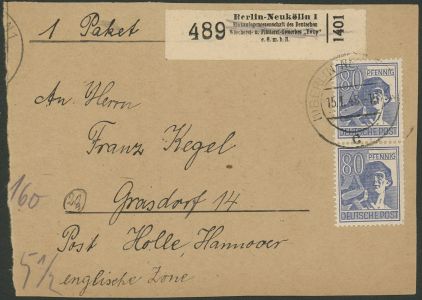 1 Paket
489
Berlin-Neukölln 1
Einkaufsgenossenschaft des Deutschen
e. G. m. b. H.
1401
80 PFENNIG
DEUTSCHE POST
80 PFENNIG
DEUTSCHE POST
BERLIN-
15.1.
c
An Herrn
Franz Kegel
Grasdorf 14
Post Holle, Hannover
englische Zone
160
5 1/2